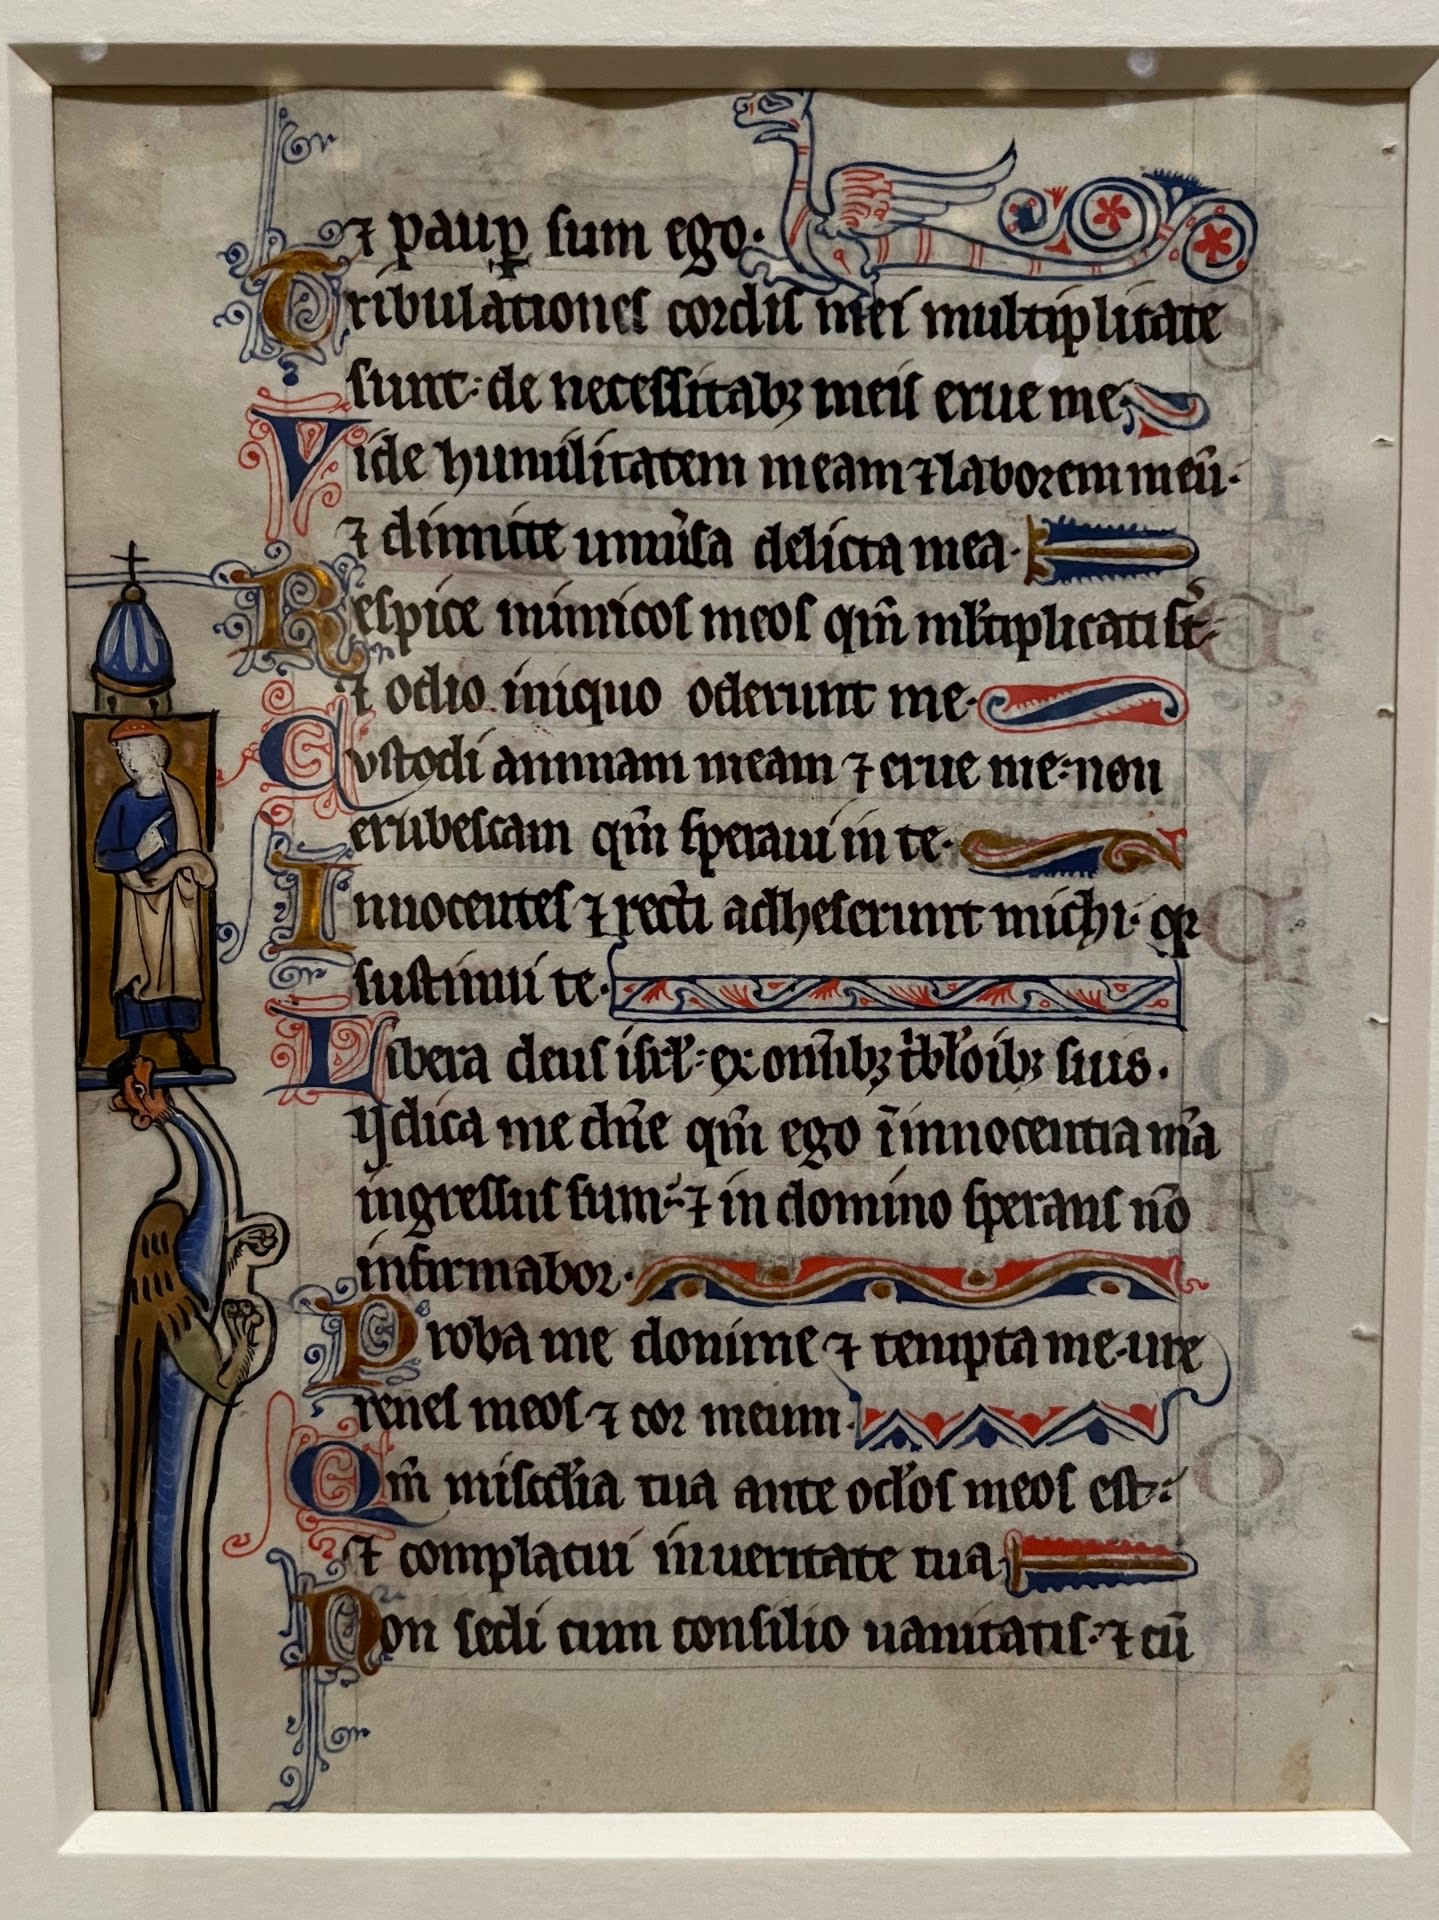 ⁊ paup̲ sum ego.
Tribulationes cordis mei multiplitate
sunt: de necessitabꝫ meis erue me.
Vide humilitatem meam ⁊ laborem meū.
⁊ dimitte uniu̾sa delicta mea.
Respice inimicos meos qm̄ ml̾tiplicati st̄.
⁊ odio iniquo oderunt me.
Custodi animam meam ⁊ erue me: non
erubescam qm̄ speraui in te.
Innocentes ⁊ recti adheserunt michi. qꝛ
sustinui te.
Libera deus isrl̾: ex om̄ibꝫ t̾bl̾oibꝫ suis.
Iydica me dn̄e qm̄ ego ī innocentia m̄a
ingressus sum: ⁊ in domino sperans nō
infirmabor.
Proba me domine ⁊ tempta me. ure
renes meos. ⁊ cor meum.
Qm̄ misc̄dia tua ante ocl̾os meos est:
⁊ complacui in ueritate tua.
Non sedi cum consilio uanitatis. ⁊ cū